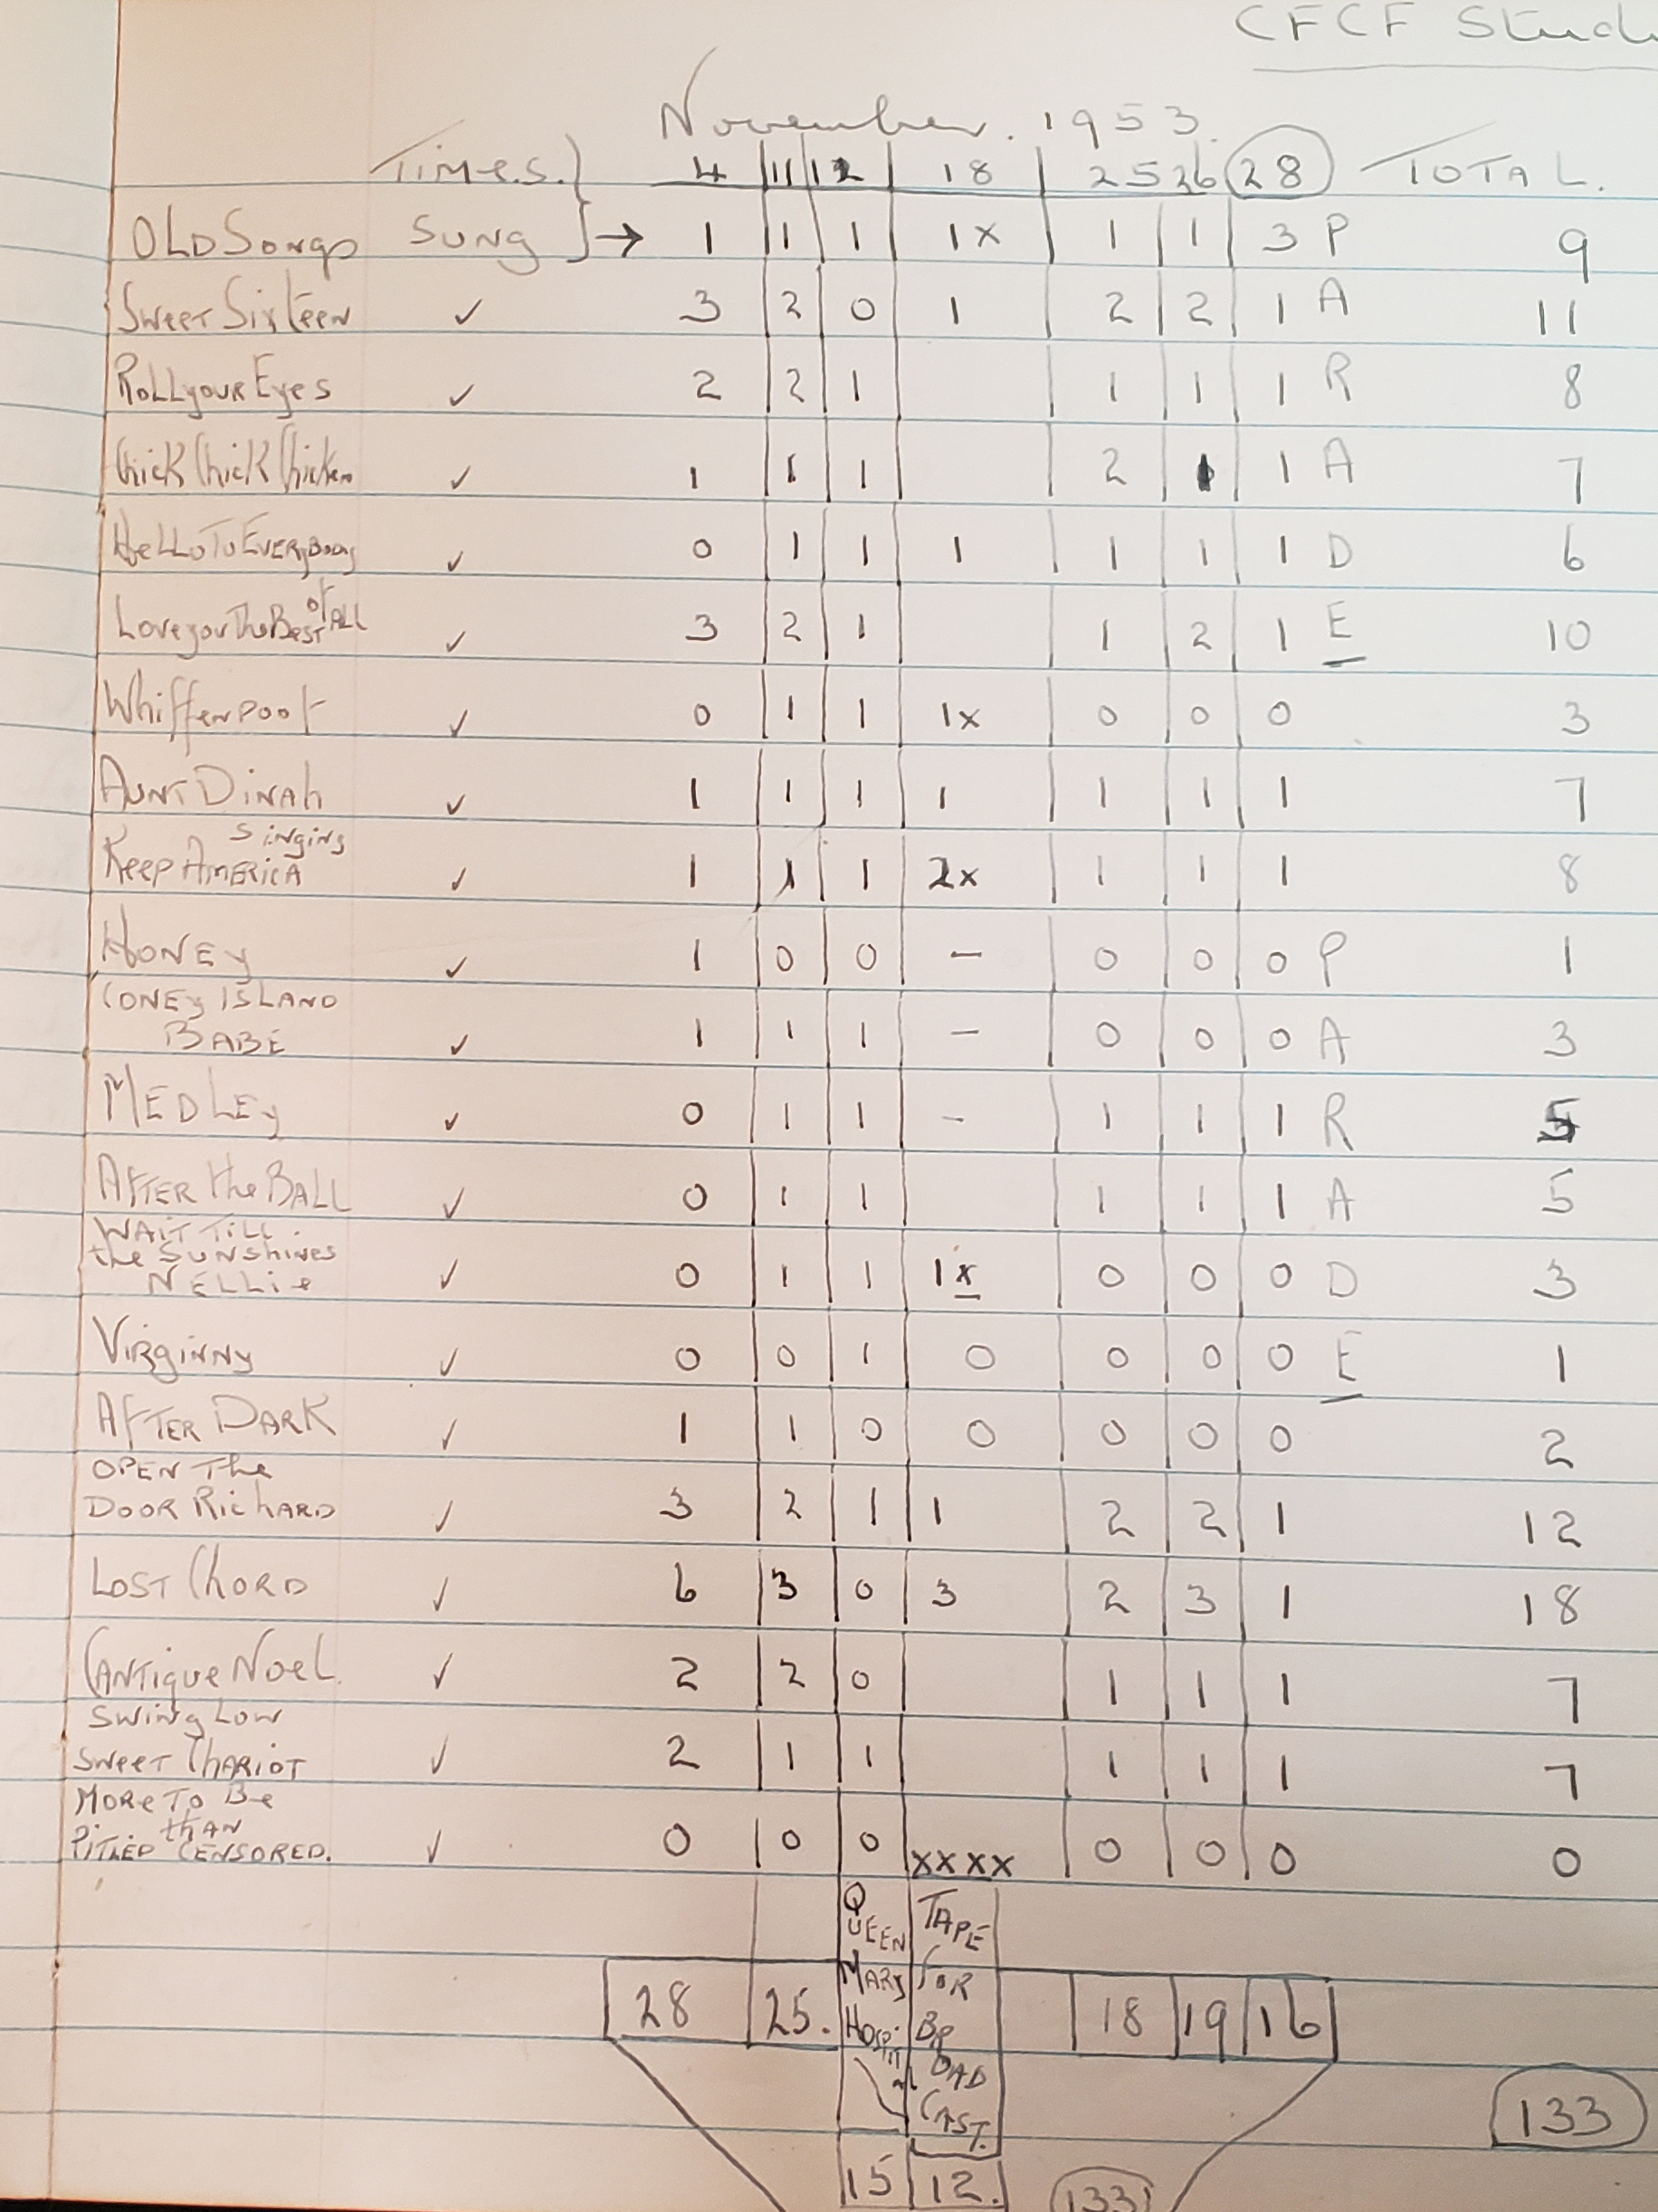 CFCF Stud
November. 1953.
Times. } 4 11 12 18 25 26 28 TOTAL.
OLD Songs Sung } → 1 1 1 1x 1 1 3 P 9
Sweet Sixteen ✓ 3 2 0 1 2 2 1 A 11
Roll your Eyes ✓ 2 2 1 1 1 1 R 8
Chick Chick Chicken ✓ 1 1 1 2 1 1 A 7
Hello To Everybody ✓ 0 1 1 1 1 1 1 D 6
Love you The Best of ALL ✓ 3 2 1 1 2 1 E 10
Whiffenpoof ✓ 0 1 1 1x 0 0 0 3
Aunt Dinah ✓ 1 1 1 1 1 1 1 7
Keep America singing ✓ 1 1 1 2x 1 1 1 8
Honey ✓ 1 0 0 – 0 0 0 P 1
CONEY ISLAND
BABE ✓ 1 1 1 – 0 0 0 A 3
MEDLEY ✓ 0 1 1 – 1 1 1 R 5
AFTER the BALL ✓ 0 1 1 1 1 1 A 5
WAIT TILL
the SUNshines
NELLie ✓ 0 1 1 1x 0 0 0 D 3
Virginny ✓ 0 0 1 0 0 0 0 E 1
AFTER DARK ✓ 1 1 0 0 0 0 0 2
OPEN The
DOOR RichARD ✓ 3 2 1 1 2 2 1 12
LOST ChORD ✓ 6 3 0 3 2 3 1 18
CANTique Noel. ✓ 2 2 0 1 1 1 7
Swing Low
Sweet ChARIOT ✓ 2 1 1 1 1 1 7
More To Be
Pitied than CENSORED. ✓ 0 0 0 xxxx 0 0 0 0
QUEEN MARY HOSPITAL
TAPE FOR BROADCAST.
28 25. 18 19 16
133
15 12. 133